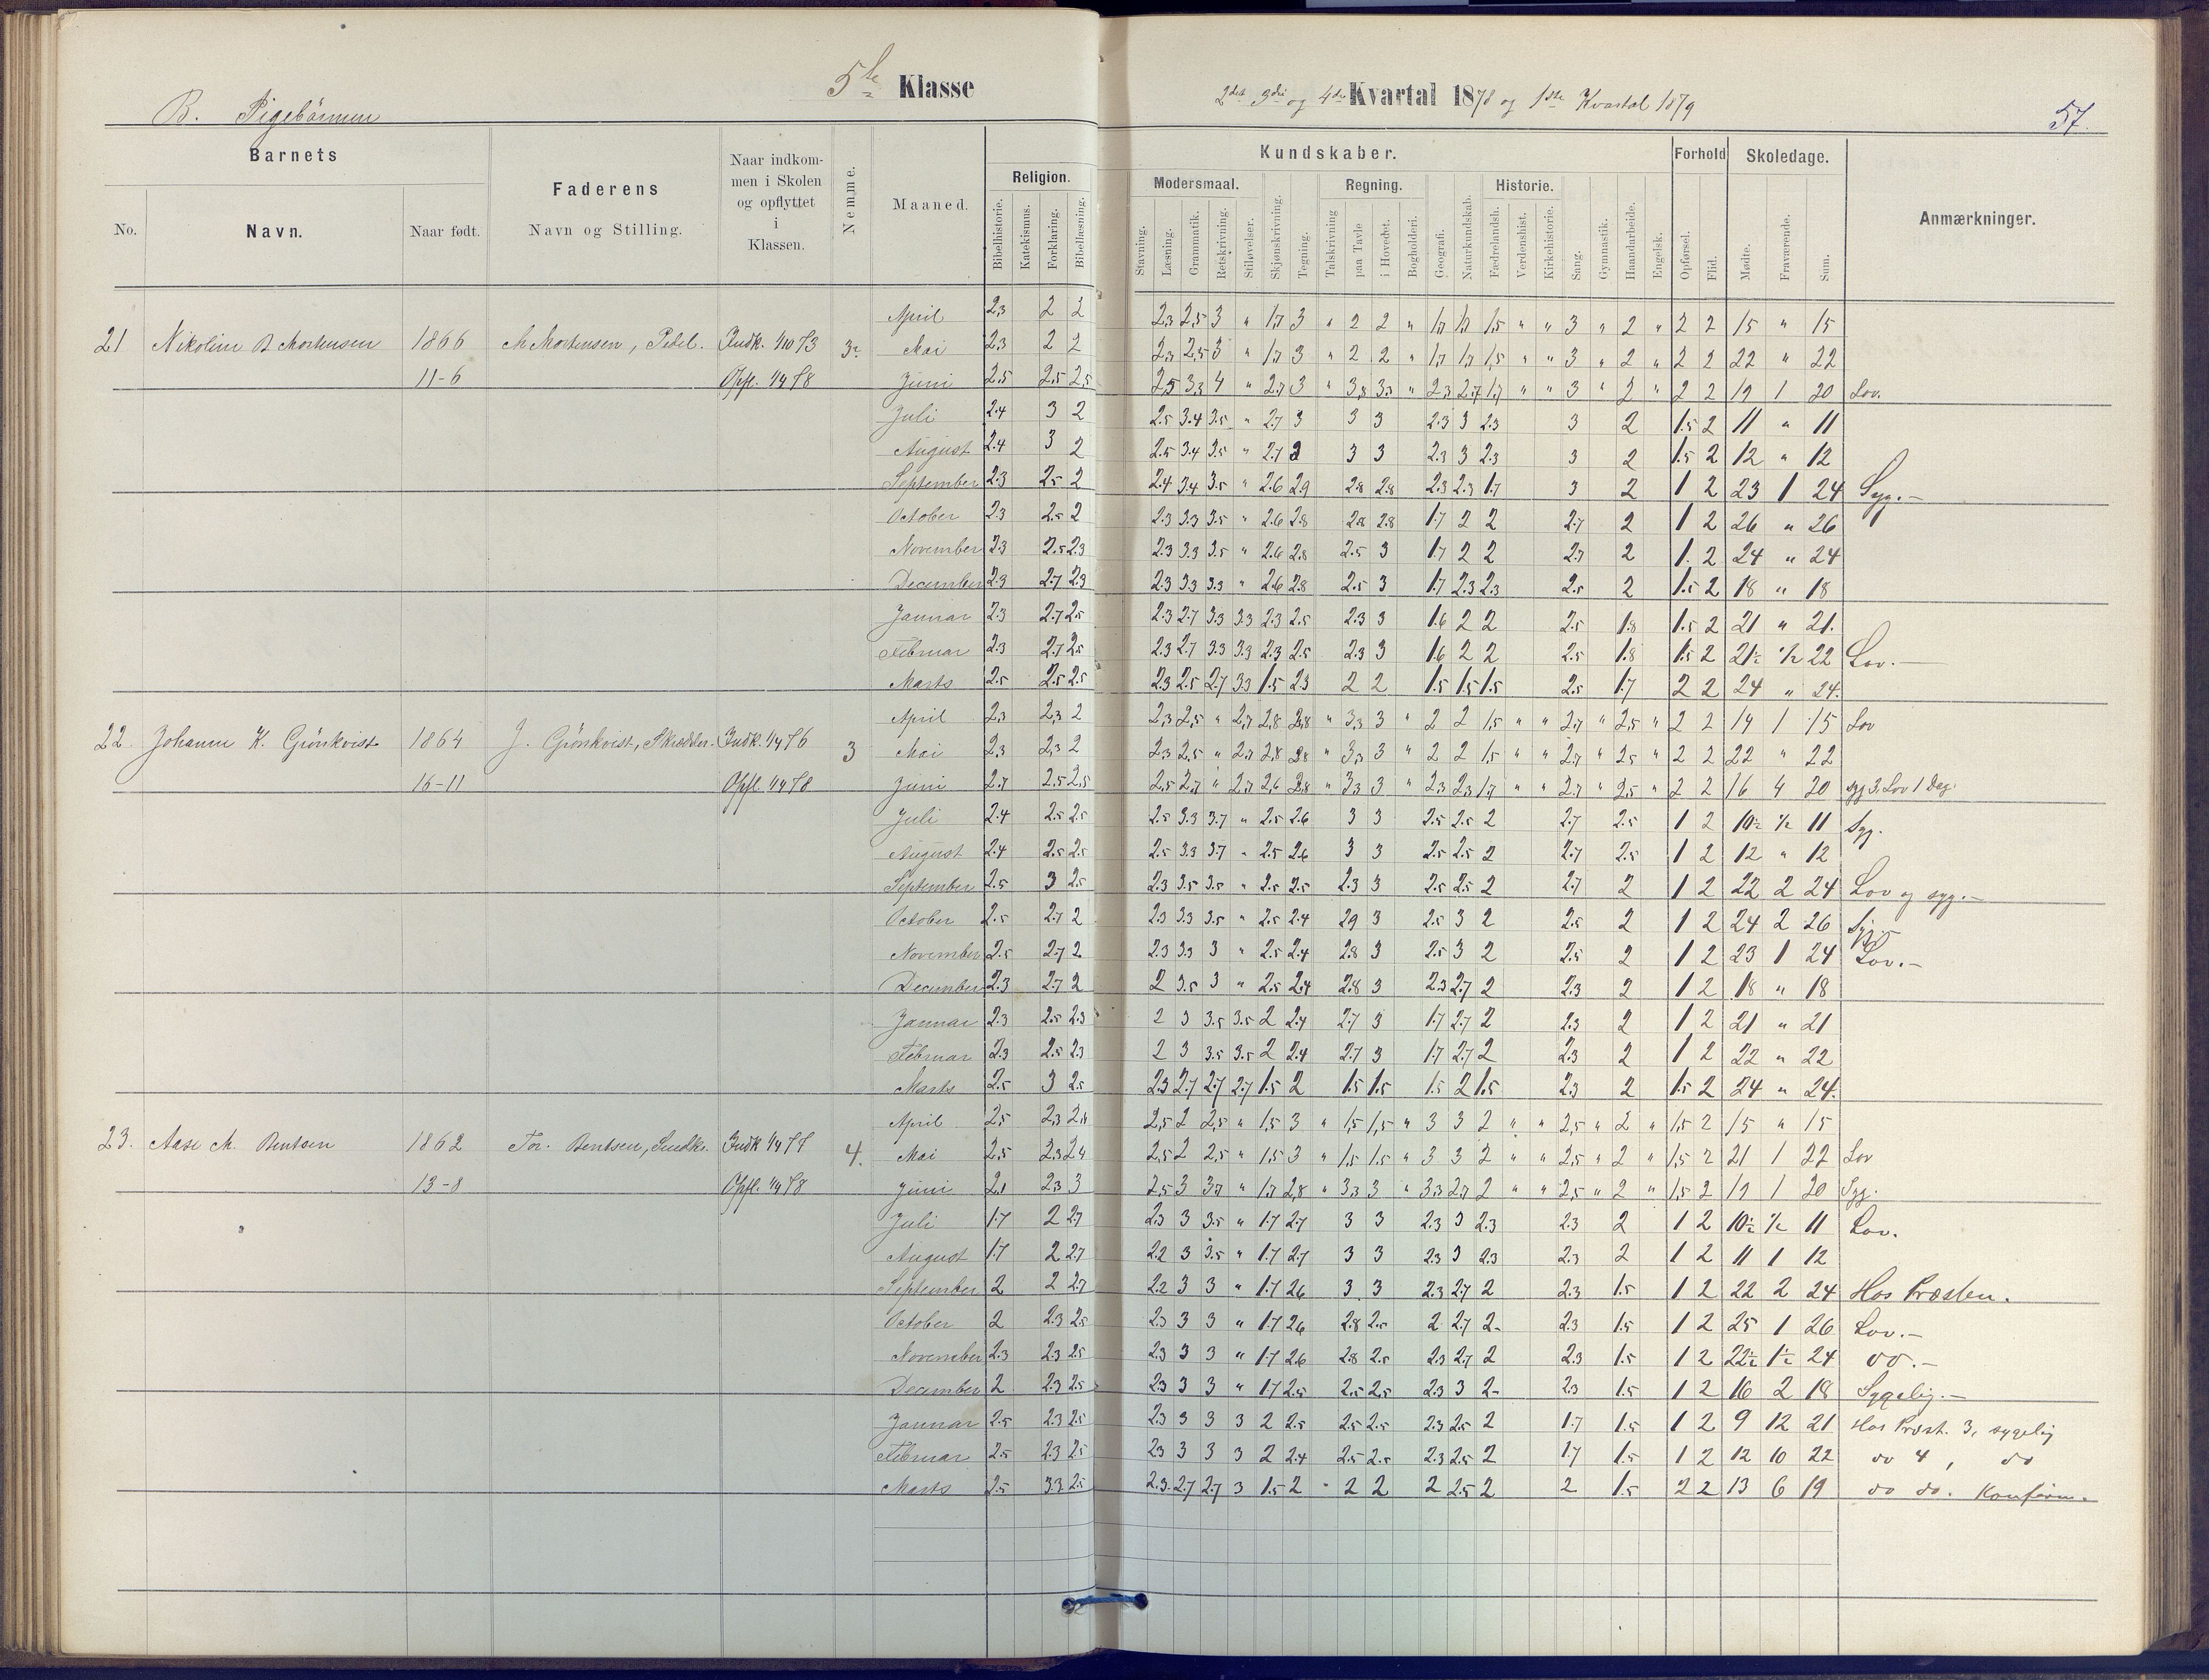 5te Klasse
2det 3die og 4de Kvartal 1878 og 1ste Kvartal 1879
B. Pigebörnene
57.
Barnets
No.
Navn.
Naar født.
Faderens
Navn og Stilling.
Naar indkom-
men i Skolen
og opflyttet
i
Klassen.
Nemme.
Maaned.
Religion.
Bibelhistorie. Katekismus. Forklaring. Bibellæsning.
Kundskaber.
Modersmaal.
Stavning. Læsning. Grammatik. Retskrivning. Stiløvelser. Skjønskrivning. Tegning.
Regning.
Talskrivning paa Tavle i Hovedet. Bogholderi. Geografi. Naturkundskab.
Historie.
Fædrelandsh. Verdenshist. Kirkehistorie. Sang. Gymnastik. Haandarbeide. Engelsk.
Forhold
Opførsel. Flid.
Skoledage.
Mødte. Fraværende. Sum.
Anmærkninger.
April 2,3 2 2 2,3 2,5 3 " 1,7 3 " 2 2 " 1,7 1,7 1,5 " " 3 " 2 " 2 2 15 " 15
21 Nikoline B Mortensen 1866 M. Mortensen, Pedel. Indk. 1/10 73 Mai 2,3 2 2 2,3 2,5 3 " 1,7 3 " 2 2 " 1,7 1,7 1,5 " " 3 " 2 " 2 2 22 " 22
11-6 Opfl. 1/4 78 Juni 2,5 2,5 2,5 2,5 3,3 4 " 2,7 3 " 3,3 3,3 " 2,3 2,7 1,7 " " 3 " 2 " 2 2 19 1 20 Lov.
Juli 2.4 3 2 2.5 3.4 3.5 " 2.7 3 3 3 2.3 3 2.3 3 2 1.5 2 11 " 11
August 2.4 3 2 2.5 3.4 3.5 " 2.7 3 3 3 2.3 3 2.3 3 2 1.5 2 12 " 12
September 2.3 2.5 2 2.4 3.4 3.5 " 2.6 2.9 2.8 2.8 2.3 2.3 1.7 3 2 1 2 23 1 24 Syg.-
October 2.3 2.5 2 2.3 3.3 3.5 " 2.6 2.8 2.8 2.8 1.7 2 2 2.7 2 1 2 26 " 26
November 2.3 2.5 2.3 2.3 3.3 3.5 " 2.6 2.8 2.5 3 1.7 2 2 2.7 2 1. 2 24 " 24
December 2.3 2.7 2.3 2.3 3.3 3.3 " 2.6 2.8 2.5 3 1.7 2.3 2.3 2.5 2 1.5 2 18 " 18
Januar 2.3 2.7 2.5 2.3 2.7 3.3 3.3 2.3 2.5 2.3 3 1.6 2 2 2.5 1.8 1.5 2 21 " 21.
Februar 2.3 2.7 2.5 2.3 2.7 3.3 3.3 2.3 2.5 2.3 3 1.6 2 2 2.5 1.8 1.5 2 21½ ½ 22 Lov.-
Marts 2.5 2.5 2.5 2.3 2.5 2.7 3.3 1.5 2.3 2 2 1.5 1.5 1.5 2.5 1.7 2 2 24 " 24.
April 2,3 2,3 2 2,3 2,5 " 2,7 2,8 2,8 " 3,3 3 " 2 2 1,5 " " 2,7 " 2,5 " 2 2 14 1 15 Lov
22. Johanne K. Grönkvist 1864 J. Grönkvist, Skrædder. Indk. 1/4 76 3 Mai 2,3 2,3 2 2,3 2,5 " 2,7 2,8 2,8 " 3,3 3 " 2 2 1,5 " " 2,7 " 2,5 " 2 2 22 " 22
16-11 Opfl. 1/4 78 Juni 2,7 2,5 2,5 2,5 2,7 " 2,7 2,6 2,8 " 3,3 3 " 2,3 2,3 1,7 " " 2,7 " 2,5 " 2 2 16 4 20 syg 3. Lov 1 Dag
Juli 2.4 2.5 2.5 2.5 3.3 3.7 " 2.5 2.6 3 3 2.5 2.5 2 2.7 2.5 1 2 10½ ½ 11 Syg.
August 2.4 2.5 2.5 2.5 3.3 3.7 " 2.5 2.6 3 3 2.5 2.5 2 2.7 2.5 1 2 12 " 12
September 2.5 3 2.5 2.3 3.5 3.5 " 2.5 2.5 2.3 3 2.5 2.5 2 2.7 2 1 2 22 2 24 Lov og syg.-
October 2.5 2.7 2 2.3 3.3 3.5 " 2.5 2.4 2.9 3 2.5 3 2 2.5 2 1 2 24 2 26 Syg.
November 2.5 2.7 2 2.3 3.3 3 " 2.5 2.4 2.8 3 2.5 3 2 2.5 2 1 2 23 1 24 Lov.-
December 2.3 2.7 2 2 3.5 3 " 2.5 2.4 2.8 3 2.3 2.7 2 2.3 2 1 2 18 " 18
Januar 2.3 2.5 2.3 2 3 3.5 3.5 2 2.4 2.7 3 1.7 2.7 2 2.3 2 1 2 21 " 21
Februar 2.3 2.5 2.3 2 3 3.5 3.5 2 2.4 2.7 3 1.7 2.7 2 2.3 2 1 2 22 " 22
Marts 2.5 3 2.5 2.3 2.7 2.7 2.7 1.5 2 1.5 1.5 1.5 2 1.5 2.3 2 1.5 2 24 " 24.
April 2,5 2,3 2,4 2,5 2 2,5 " 1,5 3 " 1,5 1,5 " 3 3 2 " " 2,5 " 2 " 1,5 2 15 " 15
23. Aase M. Bentsen 1862 Tor. Bentsen, Indk 1/4 77 4. Mai 2,5 2,3 2,4 2,5 2 2,5 " 1,5 3 " 1,5 1,5 " 3 3 2 " " 2,5 " 2 " 1,5 2 21 1 22 Lov
13-8 Opfl. 1/4 78 Juni 2,1 2,3 3 2,5 3 3,7 " 1,7 2,8 " 3,3 3 " 3,3 2,7 2 " " 2,5 " 2 " 1,5 2 19 1 20 Syg.
Juli 1.7 2 2.7 2.3 3 3.5 " 1.7 2.7 3 3 2.3 3 2.3 2.3 2 1 2 10½ ½ 11 Lov.
August 1.7 2 2.7 2.2 3 3.5 " 1.7 2.7 3 3 2.3 3 2.3 2.3 2 1 2 11 1 12
September 2 2 2.7 2.2 3 3 " 1.7 2.6 3 3 2.3 2.7 2 2.3 1.5 1 2 22 2 24 Hos Præsten.
October 2 2.3 2.5 2.3 3 3 " 1.7 2.6 2.8 2.5 2 2.7 2- 2.3 1.5 1 2 25 1 26 Lov.-
November 2.3 2.3 2.5 2.3 3 3 " 1.7 2.6 2.8 2.5 2.3 2.7 2 2.3 1.5 1 2 22½ 1½ 24 do.-
December 2 2.3 2.5 2.3 3 3 " 1.7 2.5 2.5 2.5 2.3 3 2- 2.3 1.5 1 2 16 2 18 Sygelig.-
Januar 2.5 2.3 2.5 2.3 3 3 3 2 2.5 2.5 2.5 2.3 2.5 2 1.7 1.5 1 2 9 12 21 Hos Præst. 3, sygelig
Februar 2.5 2.3 2.5 2.3 3 3 3 2 2.4 2.5 2.5 2.3 2.5 2 1.7 1.5 1 2 12 10 22 do 4, do
Marts 2.5 3.3 2.5 2.3. 2.7 2.7 3 1.5 2 2 2 2 2.5 2 2 1.5 2 2 13 6 19 do do. Konfirm.